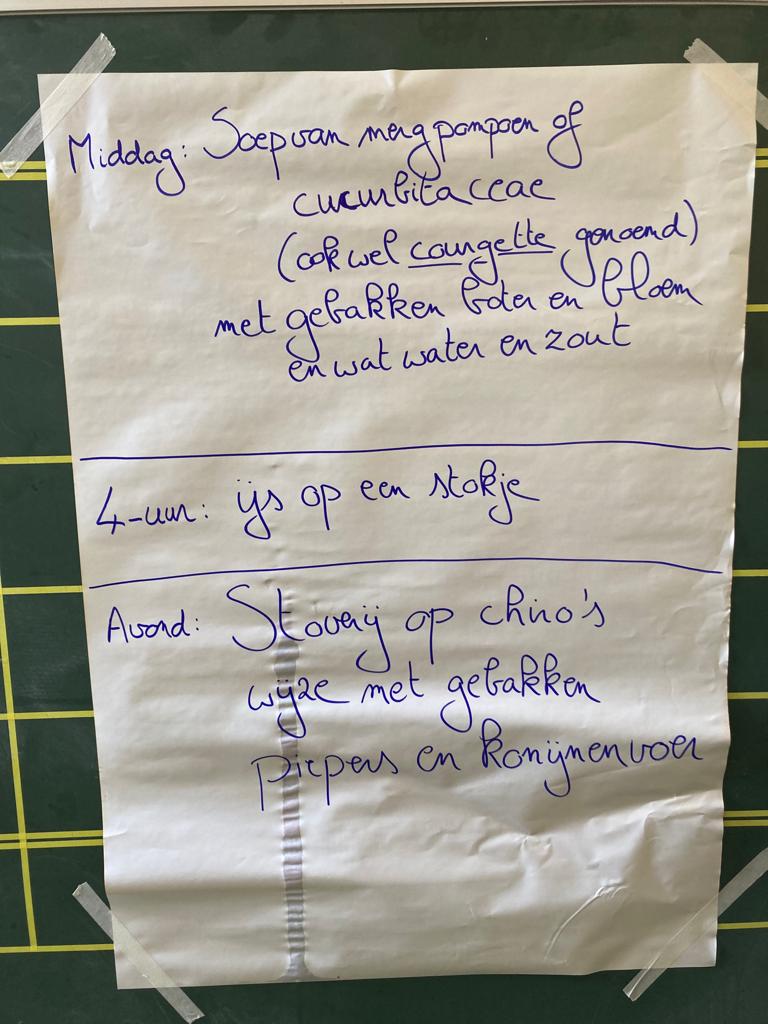 Middag: Soep van mergpompoen of
cucurbitaceae
(ook wel courgette genoemd)
met gebakken boter en bloem
en wat water en zout
4-uur: ijs op een stokje
Avond: Stoverij op chiro's
wijze met gebakken
piepers en konijnenvoer